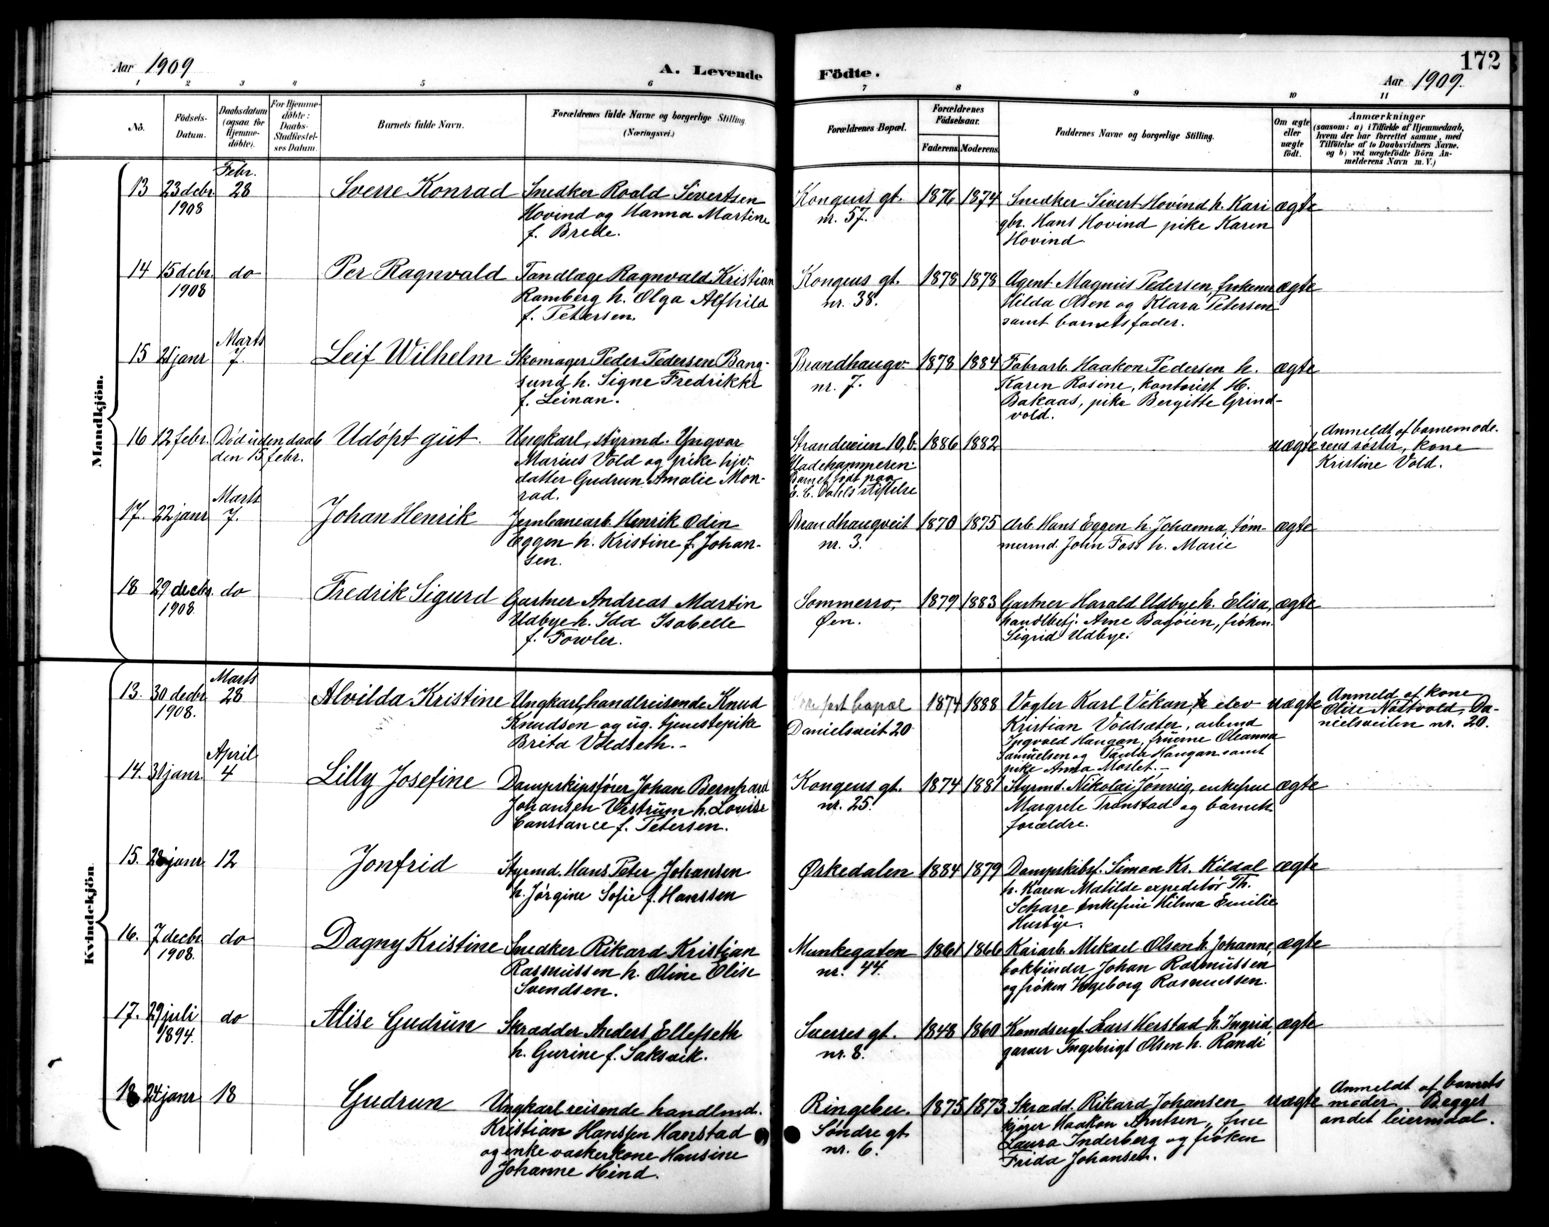 Aar 1909
A. Levende Födte.
172
Aar 1909.
1 2 3 4 5 6 7 8 9 10 11
No.
Födsels-Datum.
Daabsdatum (ogsaa for Hjemme-döbte).
For Hjemme-döbte: Daabs-Stadfæstel-ses Datum.
Barnets fulde Navn.
Forældrenes fulde Navne og borgerlige Stilling. (Næringsvei.)
Forældrenes Bopæl.
Forældrenes Födselsaar.
Faderens. Moderens.
Faddernes Navne og borgerlige Stilling.
Om ægte eller uægte födt.
Anmærkninger
(saasom: a) i Tilfælde af Hjemmedaab,
hvem der har forrettet samme, med
Tilföielse af to Daabsvidners Navne.
og b) ved uægtefödte Börn An-
melderens Navn m. V.)
Mandkjön.
13 23 decbr. 1908 Febr. 28 Sverre Konrad
Snedker Roald Sivertsen
Hovind og Hanna Martine
f. Brede.
Kongens gt.
nr. 57.
1876 1874
Snedker Sivert Hovind h. Kari
gbr. Hans Hovind pike Karen
Hovind
ægte
14 15 decbr. 1908 do Per Ragnvald
Tandlæge Ragnvald Kristian
Ramberg h. Olga Alfhild
f. Petersen.
Kongens gt.
nr. 38.
1878 1878
Agent Magnus Pedersen, frøkenerne
Hilda Olsen og Klara Petersen
samt barnets fader.
ægte
15 21 janr Marts 7 Leif Wilhelm
Skomager Peder Pedersen Bang-
sund h. Signe Fredrikke
f. Leinan.
Brandhaugv.
nr. 7.
1878 1884
Fabrarb Haakon Pedersen h.
Karen Rosine, kontorist H.
Bakaas, pike Bergitte Grind-
vold.
ægte
16 12 febr. Död uden daab
den 15 febr.
Udöpt gut.
Ungkarl, styrmd. Yngvar
Marius Vold og pike hjv.
datter Gudrun Amalie Mon-
rad.
Strandveien 10, b.
Ladehammeren
Barnet föt paa
E. C. Dahls stiftelse
1886 1882
uægte
Anmeldt af barnemode-
rens söster, kone
Kristine Vold.
17. 22 janr Marts 7. Johan Henrik
Jernbanearb Henrik Odin
Eggen h. Kristine f. Johan-
sen.
Brandhaugveit
nr. 3.
1870 1875
Arb Hans Eggen h. Johanna, töm-
mermd. John Foss h. Marie
ægte
18 29 decbr. 1908 do Fredrik Sigurd
Gartner Andreas Martin
Udbye h. Ida Isabelle
f. Fowler.
Sommerro,
Øen.
1879 1883
Gartner Harald Udbye h. Elisa,
handlbetj. Arne Bagöien, frøken
Sigrid Udbye.
ægte
Kvindekjön
13. 30 decbr 1908. Marts 28 Alvilda Kristine
Ungkarl, handlreisende Knud
Knudsen og ug. tjenestepike
Breta Voldseth. -
fast bopæl
Danielsveit 20
1874 1888
Vogter Karl Vikan, elev
Kristian Voldsæter, arbmd
Ingvald Haugan, fruerne Oleanna
Samuelsen og Haugan samt
pike Anna Moslet. -
uægte
Anmeld af kone
Elise Nostvold, Da-
nielsveiten nr. 20.
14. 31 janr April 4 Lilly Josefine
Dampskipsförer Johan Bernhard
Johansen Vestrum h. Lovise
Constance f. Petersen.
Kongens gt.
nr. 25.
1874 1881
Styrmd. Nikolai Jönvig, enkefrue
Margrete Tronstad og barnets
forældre.
ægte
15. 28 janr 12 Jonfrid
Styrmd. Hans Peter Johansen
h. Jörgine Sofie f. Hanssen
Ørkedalen
1884 1879
Dampskibsf. Simon Kr. Kildal
h. Karen Matilde expeditör Th.
Schare enkefrue Hilma Emilie
Husbye.
ægte
16. 7 decbr 1908. do Dagny Kristine
Snedker Rikard Kristian
Rasmussen h. Oline Elise
Svendsen.
Munkegaten
nr. 44.
1861 1866
Kaiarb. Mikael Olsen h. Johanne,
bokbinder Johan Rasmussen
og frøken Ingeborg Rasmussen.
ægte
17. 29 juli 1894. do Alise Gudrun
Skrædder Anders Ellefseth
h. Gurine f. Saksvik.
Sverres gt.
nr. 8.
1848 1860
Komdsergt. Lars Herstad h. Ingrid,
garver Ingebrigt Olsen h. Randi
ægte
18 24 janr 18 Gudrun
Ungkarl reisende handlmd.
Kristian Hanssen Hanstad
og enke vaskerkone Hansine
Johanne Hind.
Ringebu.
Söndre gt.
nr. 6.
1875 1873
Skrædd. Rikard Johansen
kjöper Haakon Knutsen, frue
Laura Inderberg og frøken
Frida Johansen.
uægte
Anmeldt af barnets
moder Begges
andet leiermaal.